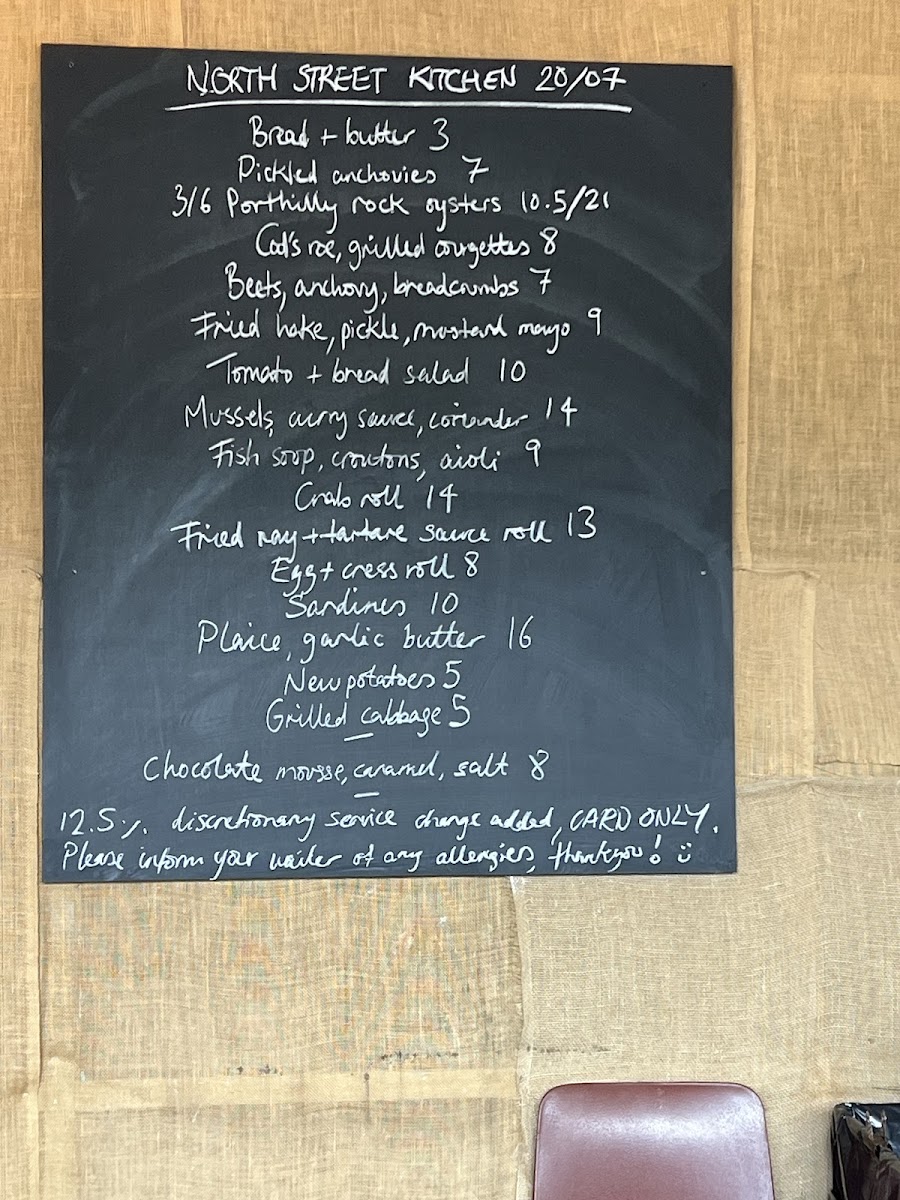 NORTH STREET KITCHEN 20/07
Bread + butter 3
Pickled anchovies 7
3/6 Porthilly rock oysters 10.5/21
Cod's roe, grilled courgettes 8
Beets, anchovy, breadcrumbs 7
Fried hake, pickle, mustard mayo 9
Tomato + bread salad 10
Mussels, curry sauce, coriander 14
Fish soup, croutons, aioli 9
Crab roll 14
Fried ray + tartare sauce roll 13
Egg + cress roll 8
Sardines 10
Plaice, garlic butter 16
New potatoes 5
Grilled cabbage 5
Chocolate mousse, caramel, salt 8
12.5% discretionary service charge added, CARD ONLY.
Please inform your waiter of any allergies, thankyou! ü